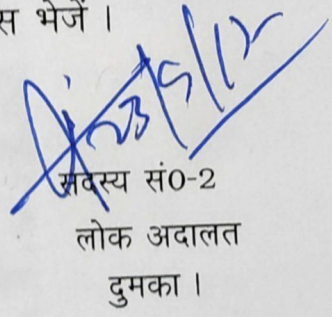 भेजें ।
23/5/12
सदस्य सं0-2
लोक अदालत
दुमका ।